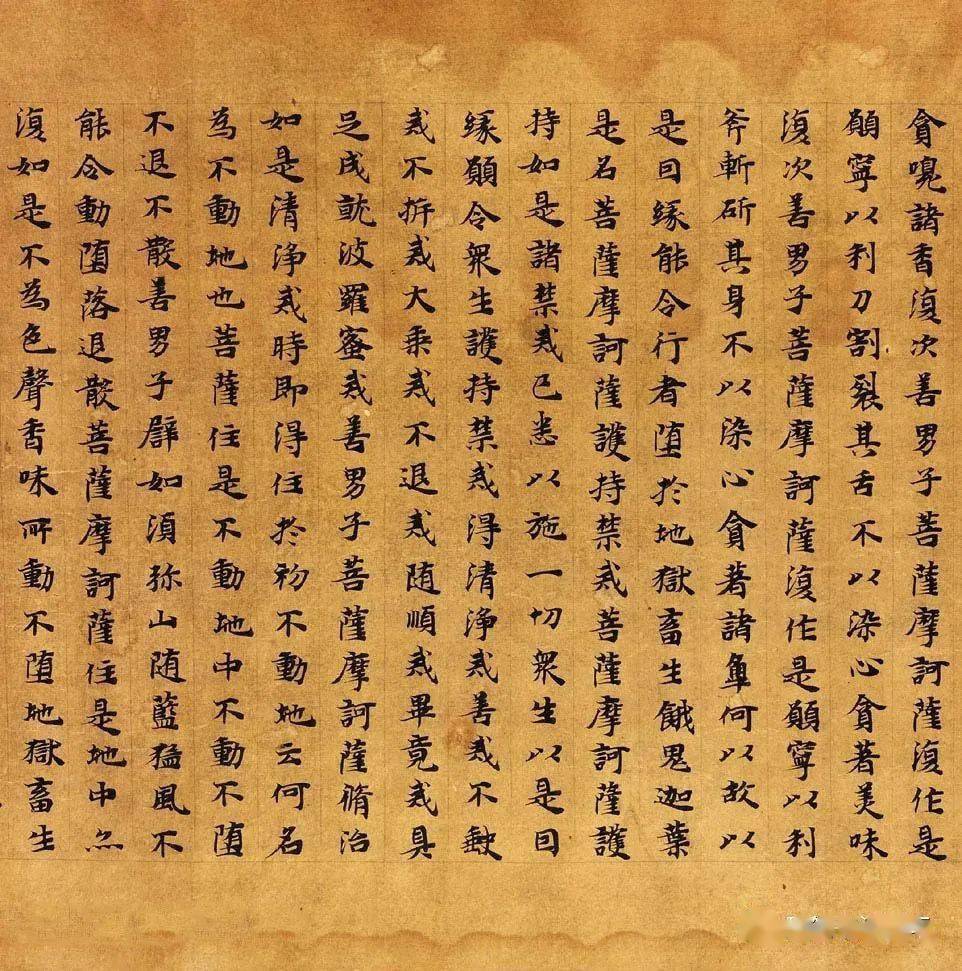 貪嗅諸香復次善男子菩薩摩訶薩復作是
願寧以利刀割裂其舌不以染心貪著美味
復次善男子菩薩摩訶薩復作是願寧以利
斧斬斫其身不以染心貪著諸觸何以故以
是因緣能令行者墮於地獄畜生餓鬼迦葉
是名菩薩摩訶薩護持禁戒菩薩摩訶薩護
持如是諸禁戒已悉以施一切眾生以是因
緣願令眾生護持禁戒得清淨戒善戒不缺
戒不析戒大乘戒不退戒隨順戒畢竟戒具
足成就波羅蜜戒善男子菩薩摩訶薩脩治
如是清淨戒時即得住於初不動地云何名
為不動地也菩薩住是不動地中不動不墮
不退不散善男子譬如須弥山隨藍猛風不
能令動墮落退散菩薩摩訶薩住是地中亦
復如是不為色聲香味所動不墮地獄畜生